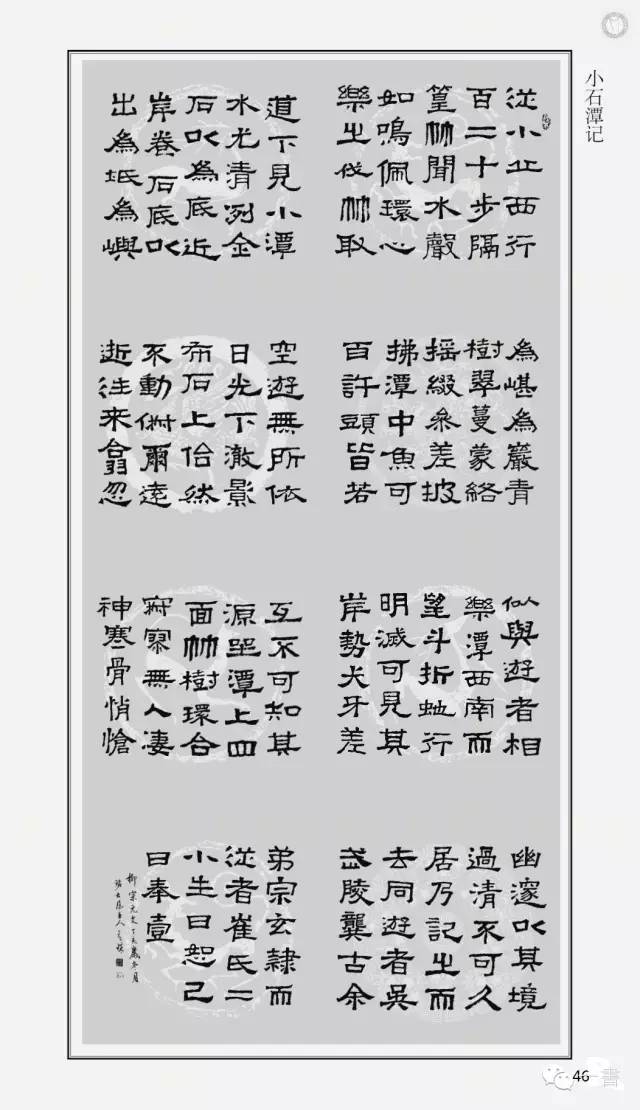 小石潭记
從小丘西行
百二十步隔
篁竹聞水聲
如鳴佩環心
樂之伐竹取
道下見小潭
水尤清洌金
石以為底近
岸卷石底以
出為坻為嶼
為嵁為巖青
樹翠蔓蒙絡
搖綴參差披
拂潭中魚可
百許頭皆若
空遊無所依
日光下澈影
布石上佁然
不動俶爾遠
逝往來翕忽
似與遊者相
樂潭西南而
望斗折蛇行
明滅可見其
岸勢犬牙差
互不可知其
源坐潭上四
面竹樹環合
寂寥無人淒
神寒骨悄愴
幽邃以其境
過清不可久
居乃記之而
去同遊者吳
武陵龔古余
弟宗玄隸而
從者崔氏二
小生曰恕己
曰奉壹
柳宗元文丁亥歲冬月
46
一書